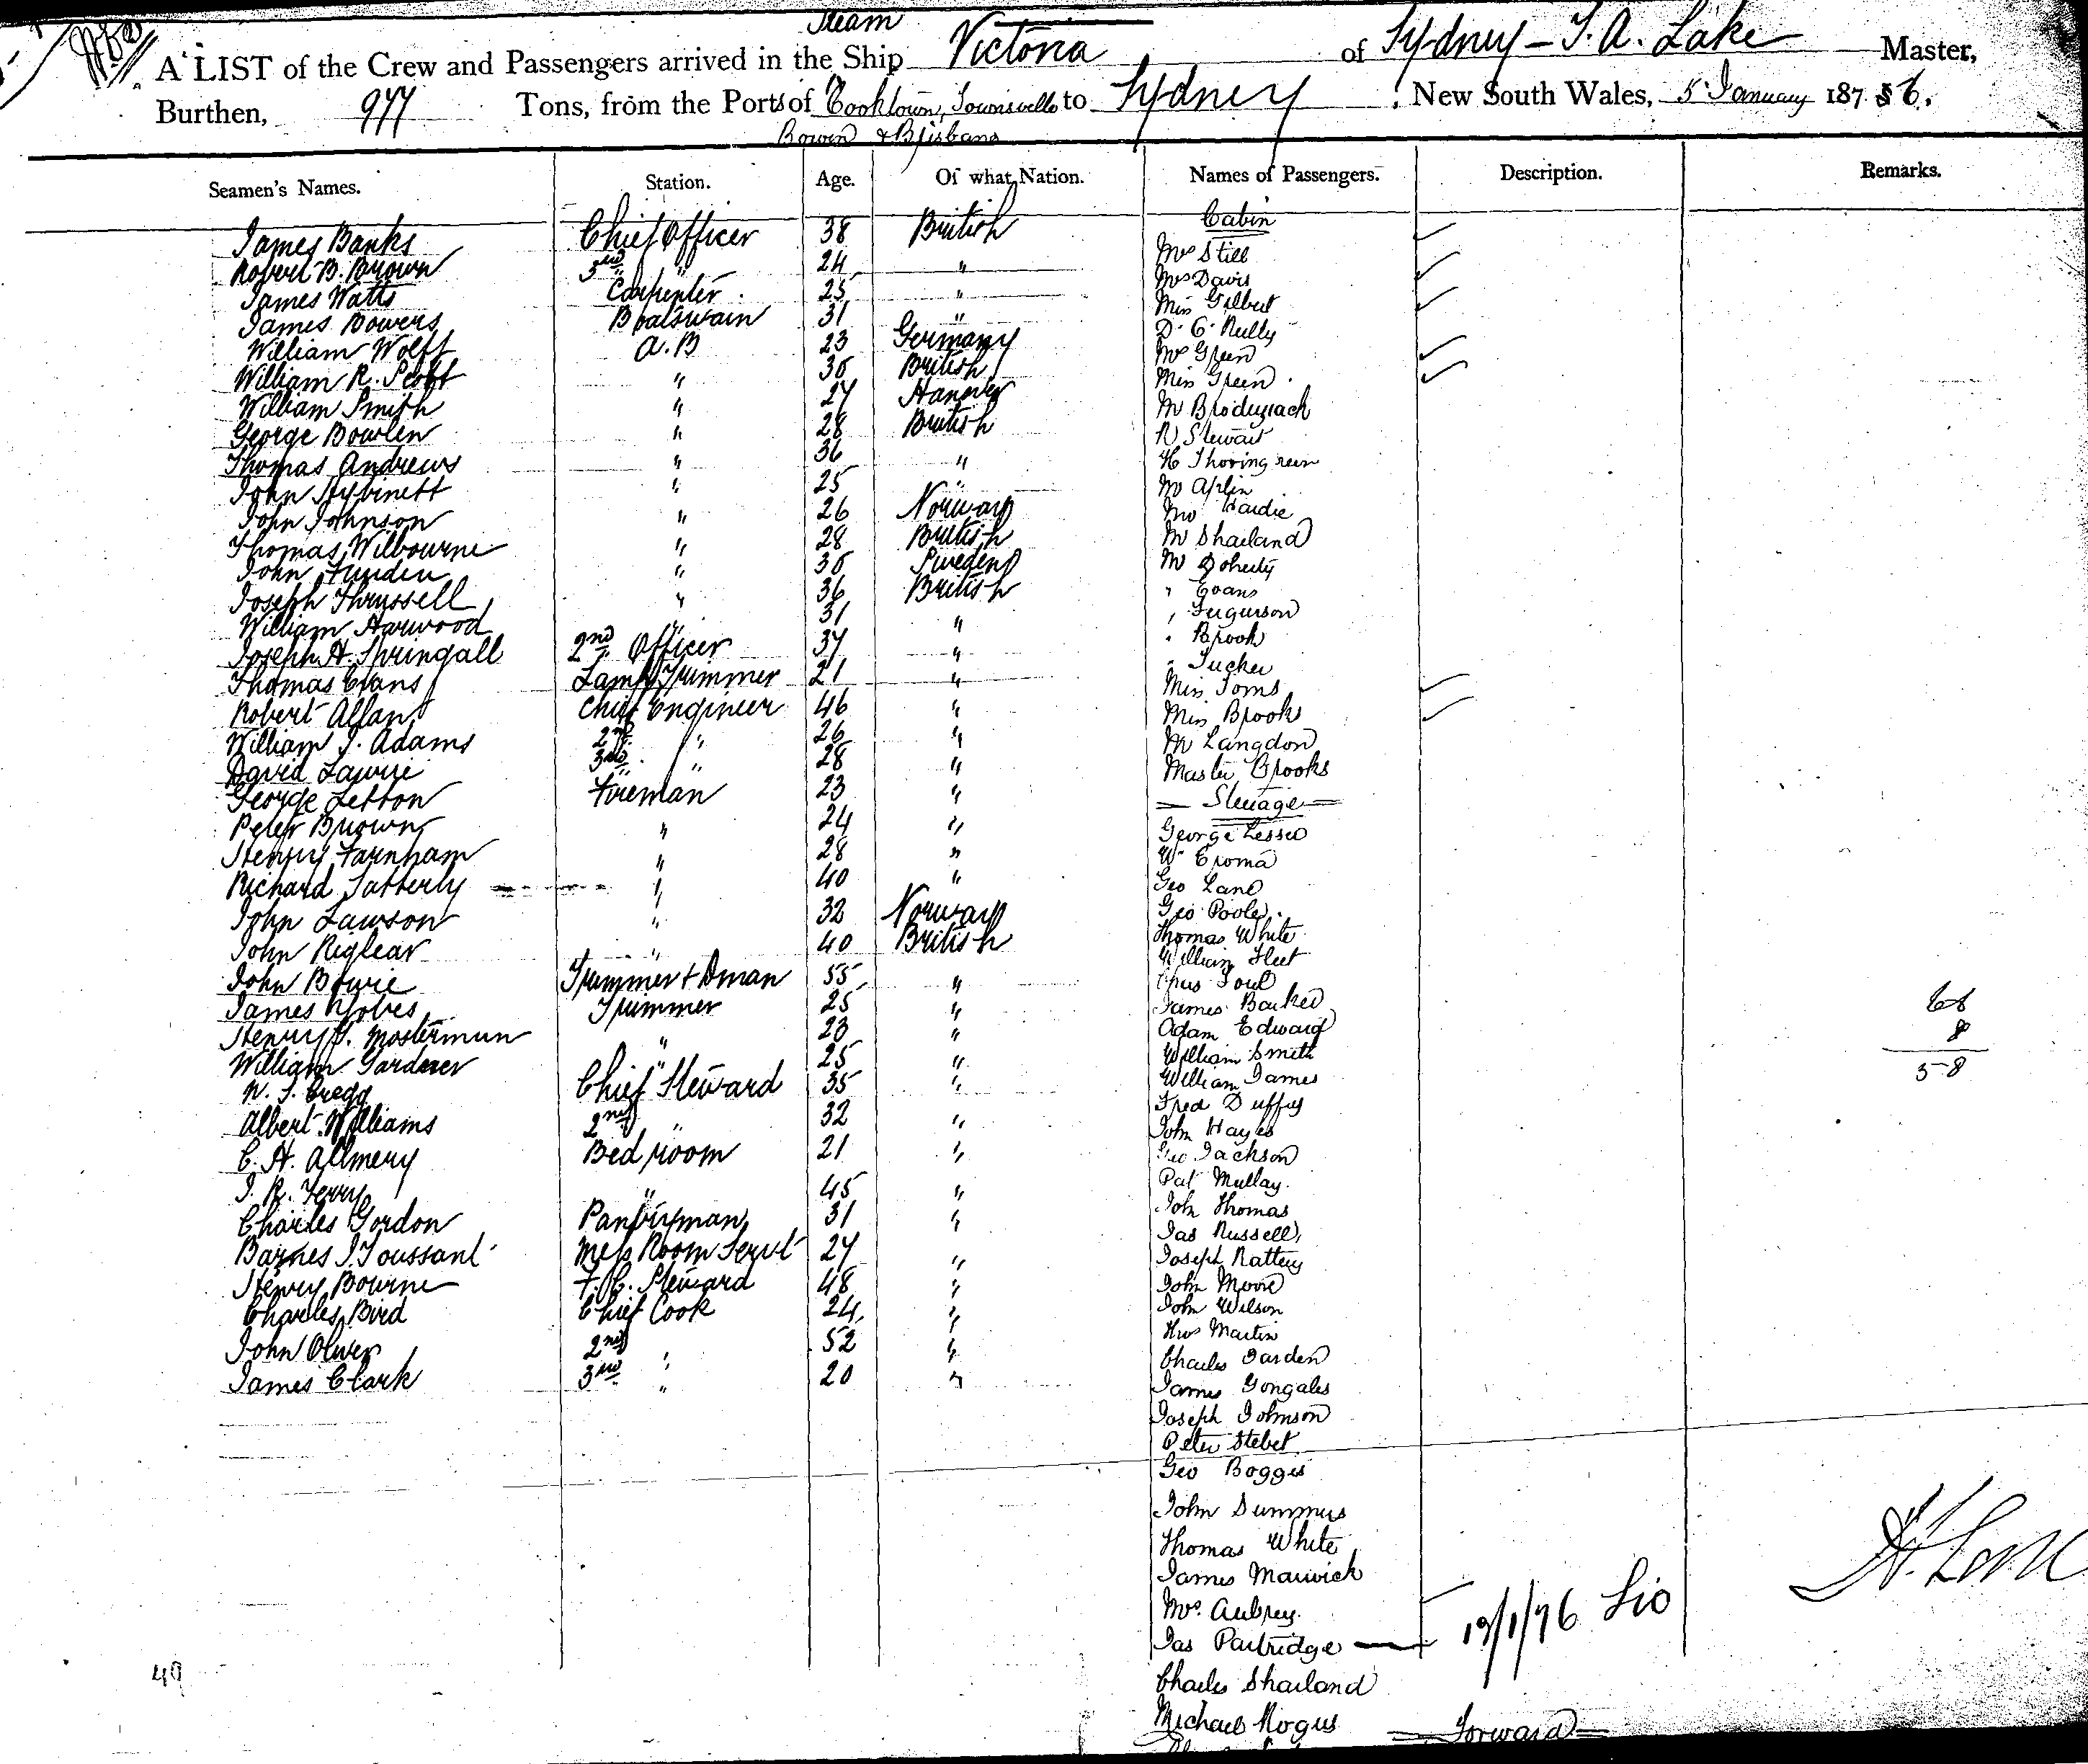 Steam
A LIST of the Crew and Passengers arrived in the Ship Victoria of Sydney - T. A. Lake Master,
Burthen, 977 Tons, from the Ports of Cooktown, Townsville to Sydney, New South Wales, 5 January 1876.
Bowen & Brisbane
Seamen's Names. Station. Age. Of what Nation. Names of Passengers. Description. Remarks.
Cabin
James Banks Chief Officer 38 British Mrs Still
Robert B. Brown 3rd " 24 " Mrs Davis
James Watts Carpenter 25 " Miss Gilbert
James Bowers Boatswain 31 " D. O. Reilly
William Wolff A.B 23 Germany Mrs Green
William R. Scott " 30 British Miss Green
William Smith " 27 Hanover Mr Brodziach
George Bowlen " 28 British R Stewart
Thomas Andrews " 36 " H
John Hybinett " 25 " Mr Aplin
John Johnson " 26 Norway Mr Hardie
Thomas Wilbourne " 28 British Mr Shailand
John " 30 Sweden Mr Doherty
Joseph Thrussell " 36 British " Evans
William Harwood " 31 " " Fergusson
Joseph H. Springall 2nd Officer 37 " " Brook
Thomas Evans Lamp Trimmer 21 " " Tucker
Robert Allan Chief Engineer 46 " Miss Toms
William J. Adams 2nd " 26 " Miss Brooks
David Lawrie 3rd " 28 " Mr Langdon
George Letton Fireman 23 " Master Brooks
Steerage
Peter Brown " 24 " George
Henry Farnham " 28 " Wm
Richard Tatterly " 40 " Geo Land
John Lawson " 32 Norway Geo Poole
John Riglear " 40 British Thomas White
John Bowie Trimmer & Dman 55 " William Fleet
James Trimmer 25 " James Barker
Henry J. Mosterman " 23 " Adam Edward
William Gardener " 25 " William Smith
W. J. Gregg Chief Steward 35 " William James
Albert Williams 2nd " 32 " Fred Duffus
C. H. Allmery Bedroom 21 " John Hayes
J. R. Terry " 45 " Geo Jackson
Charles Gordon Pantryman 31 " Pat Mullay
Barnes J. Toussant Mess Room Servt 27 " John Thomas
Henry Bourne F. C. Steward 48 " Jas Russell
Charles Bird Chief Cook 24 " Joseph Rattery
John Oliver 2nd " 52 " John Moore
James Clark 3rd " 20 " John Wilson
Thos Martin
Charles Darden
James Gongales
Joseph Johnson
Peter Stebet
Geo Boggis
John Summers
Thomas White
James Marwick
Mrs. Aubrey
Jas Partridge
Charles Shailand
Michael
Forward
58
13/1/76
49